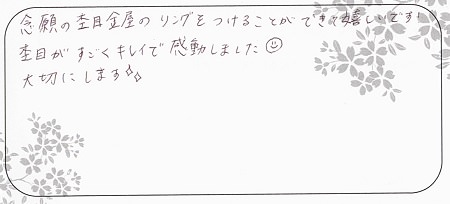 念願の杢目金屋のリングをつけることができて嬉しいです!
杢目がすごくキレイで感動しました☺
大切にします✧✧